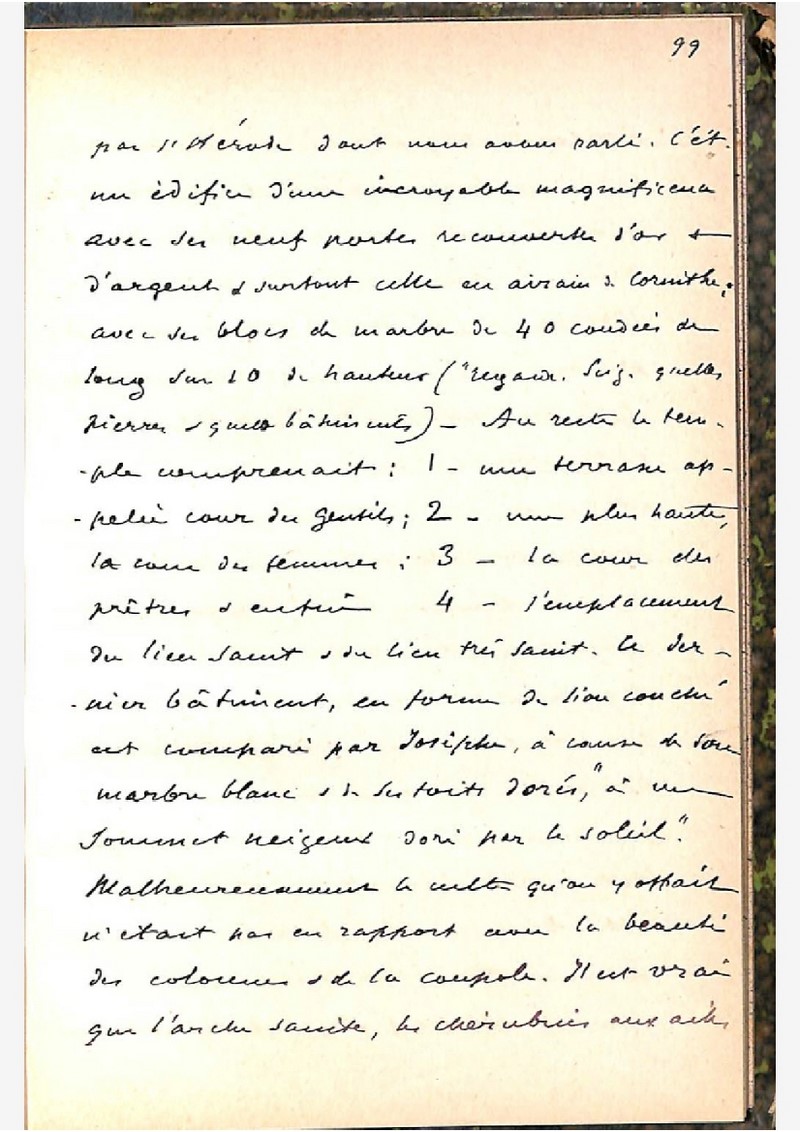 99
par l'Hérode dont nous avons parlé. C'ét.
un édifice d'une incroyable magnificence
avec ses neuf portes recouvertes d'or et
d'argent & surtout celle en airain de Corinthe,
avec ses blocs de marbre de 40 coudées de
long sur 10 de hauteur ("regarde. Seig. quelles
pierres & quels bâtiments) - Au reste le tem-
-ple comprenait : 1 - une terrasse ap-
-pelée cour des Gentils ; 2 - une plus haute,
la cour des femmes ; 3 - la cour des
prêtres & enfin 4 - l'emplacement
du lieu saint & du lieu très saint. Ce der-
-nier bâtiment, en forme de lion couché
est comparé par Josèphe, à cause de son
marbre blanc & de ses toits dorés, "à un
sommet neigeux doré par le soleil".
Malheureusement le culte qu'on y offrait
n'était pas en rapport avec la beauté
des colonnes & de la coupole. Il est vrai
que l'arche sainte, les chérubins aux ailes